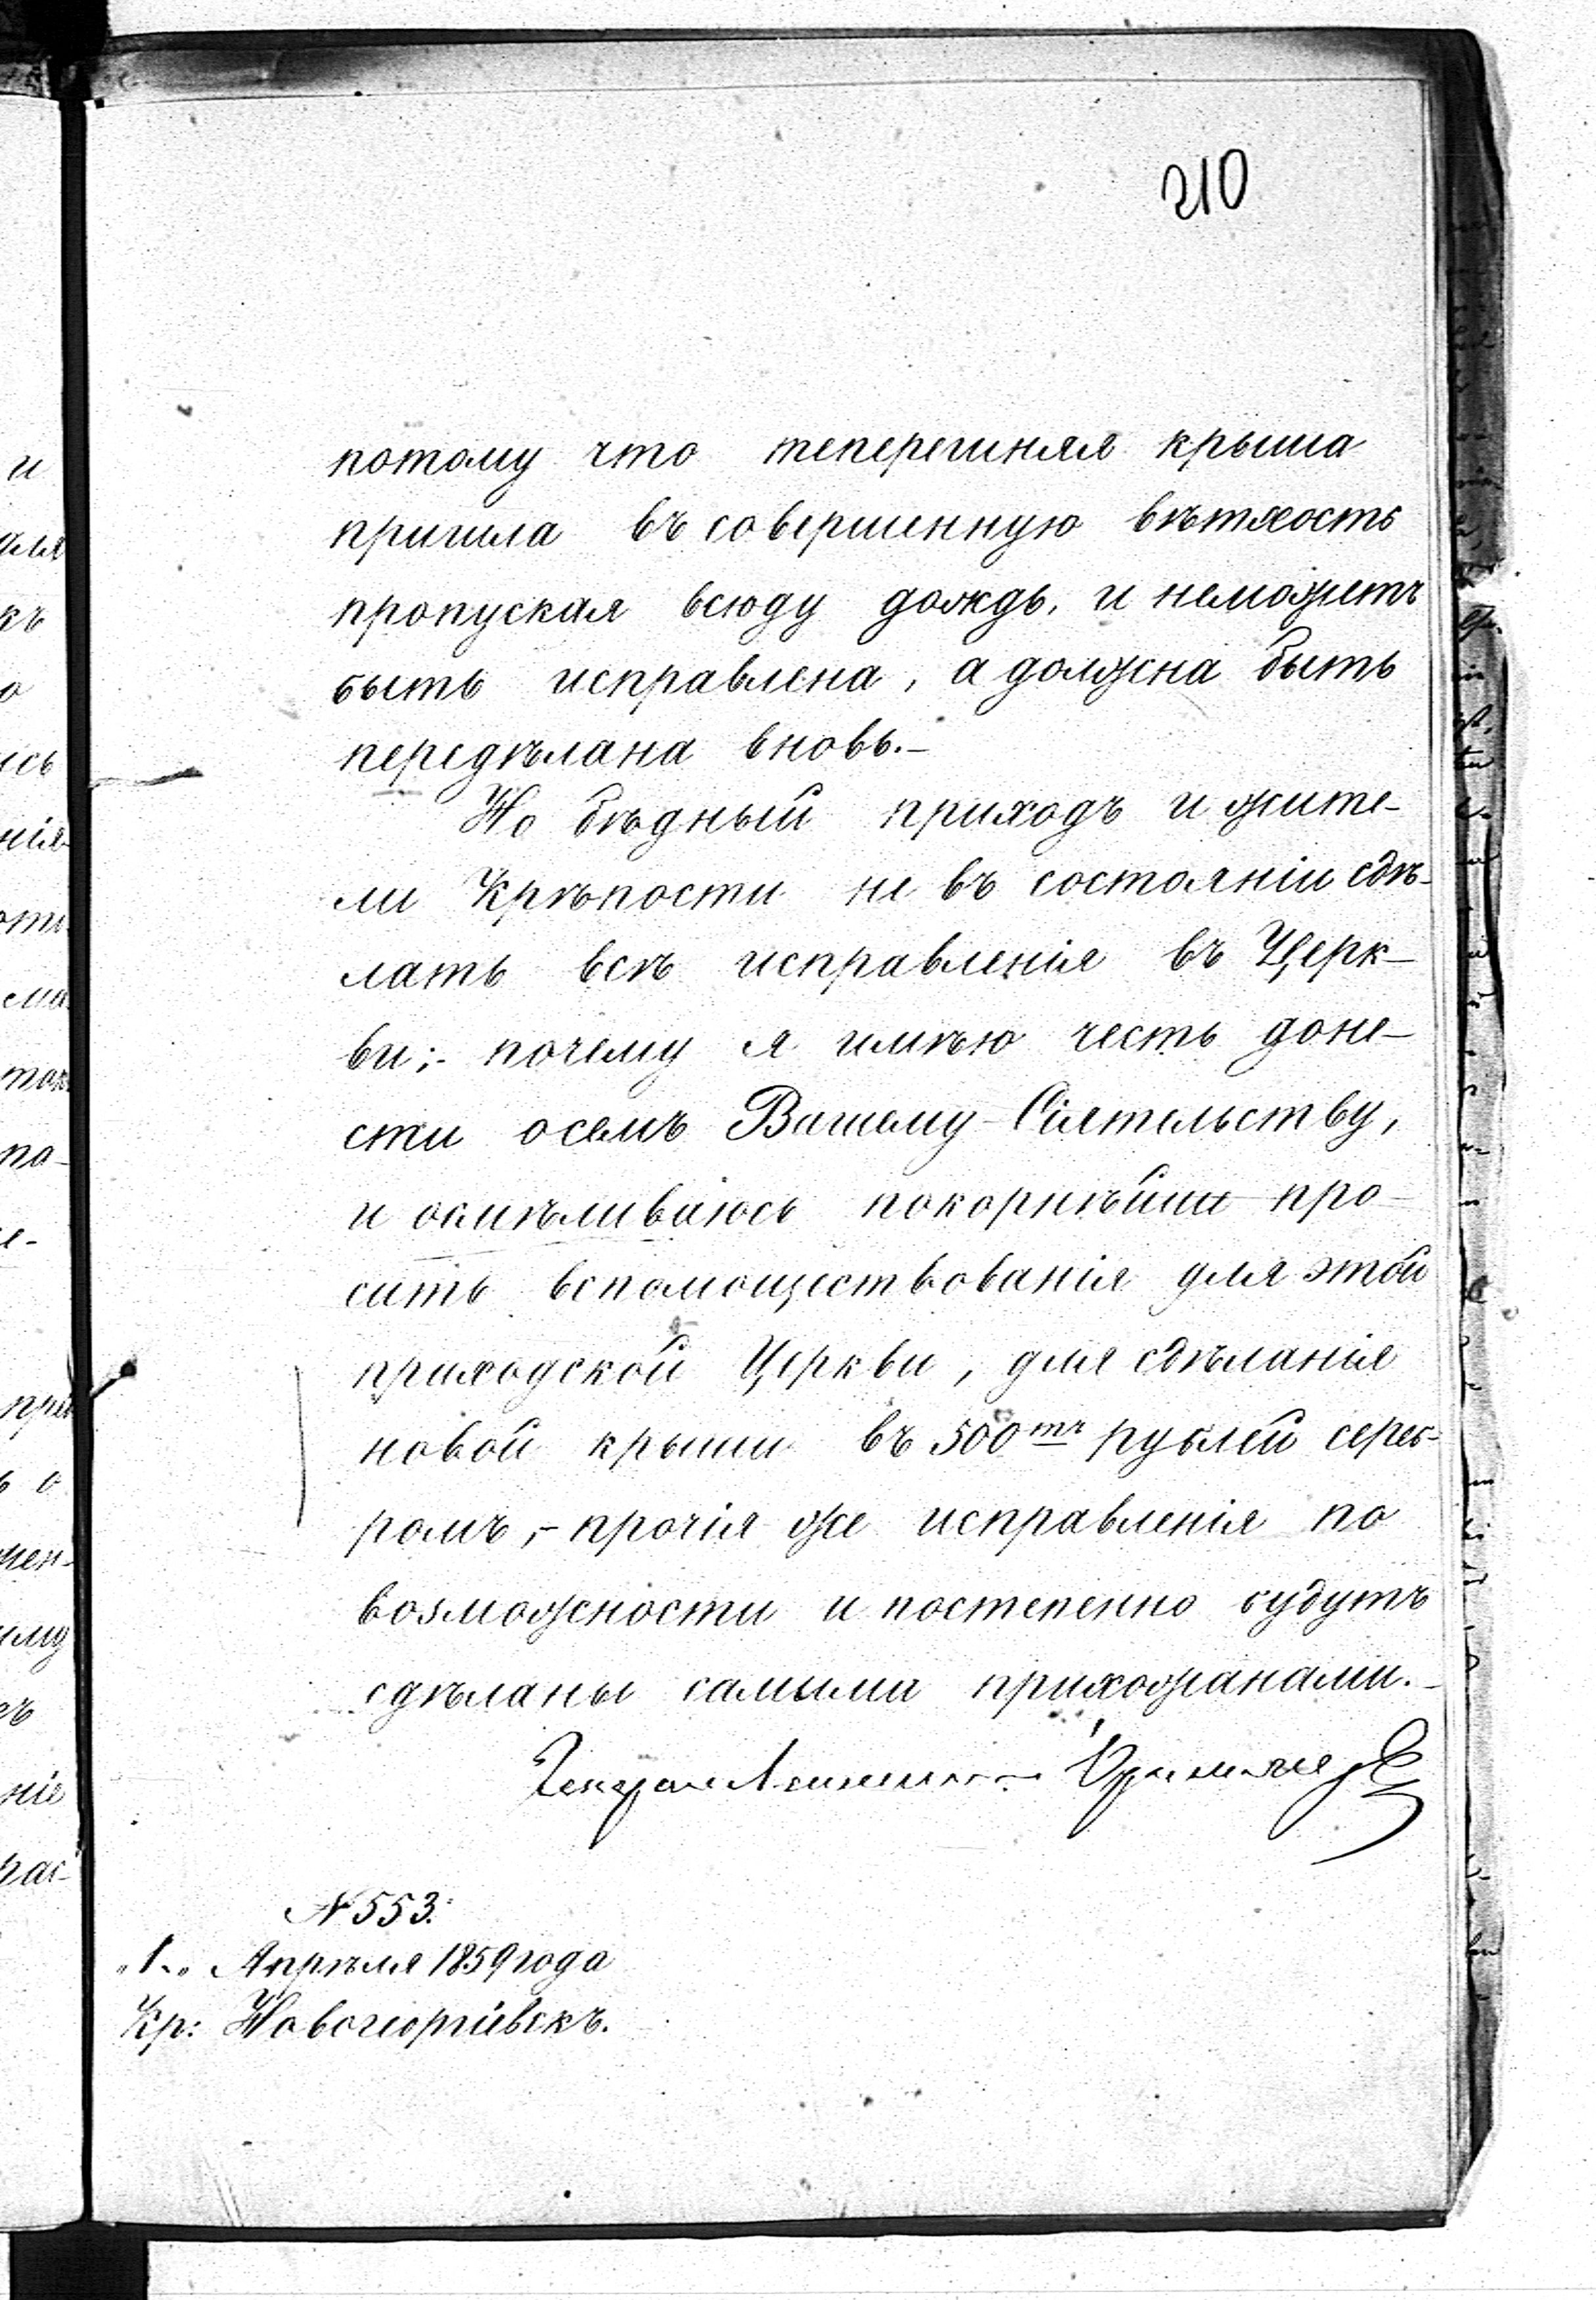 210
потому что теперешняя крыша
пришла въ совершенную вѣтхость
пропуская всюду дождь, и неможетъ
быть исправлена, а должна быть
передѣлана вновь.-
Но бѣдный приходъ и жите-
ли Крѣпости не въ состояніи сдѣ-
лать всѣ исправленія въ Церк-
ви;- почему я имѣю честь доне-
сти осемъ Вашему Сіятельству,
и осмѣливаюсь покорнѣйше про-
сить вспомоществованія для этой
приходской Церкви, для сдѣланія
новой крыши въ 500тъ рублей сереб-
ромъ,- прочія же исправленія по
возможности и постепенно будутъ
сдѣланы самыми прихожанами.-
Генералъ Лейтенантъ
№ 553.
"1" Апрѣля 1859 года
Кр: Новогеоргіевскъ.